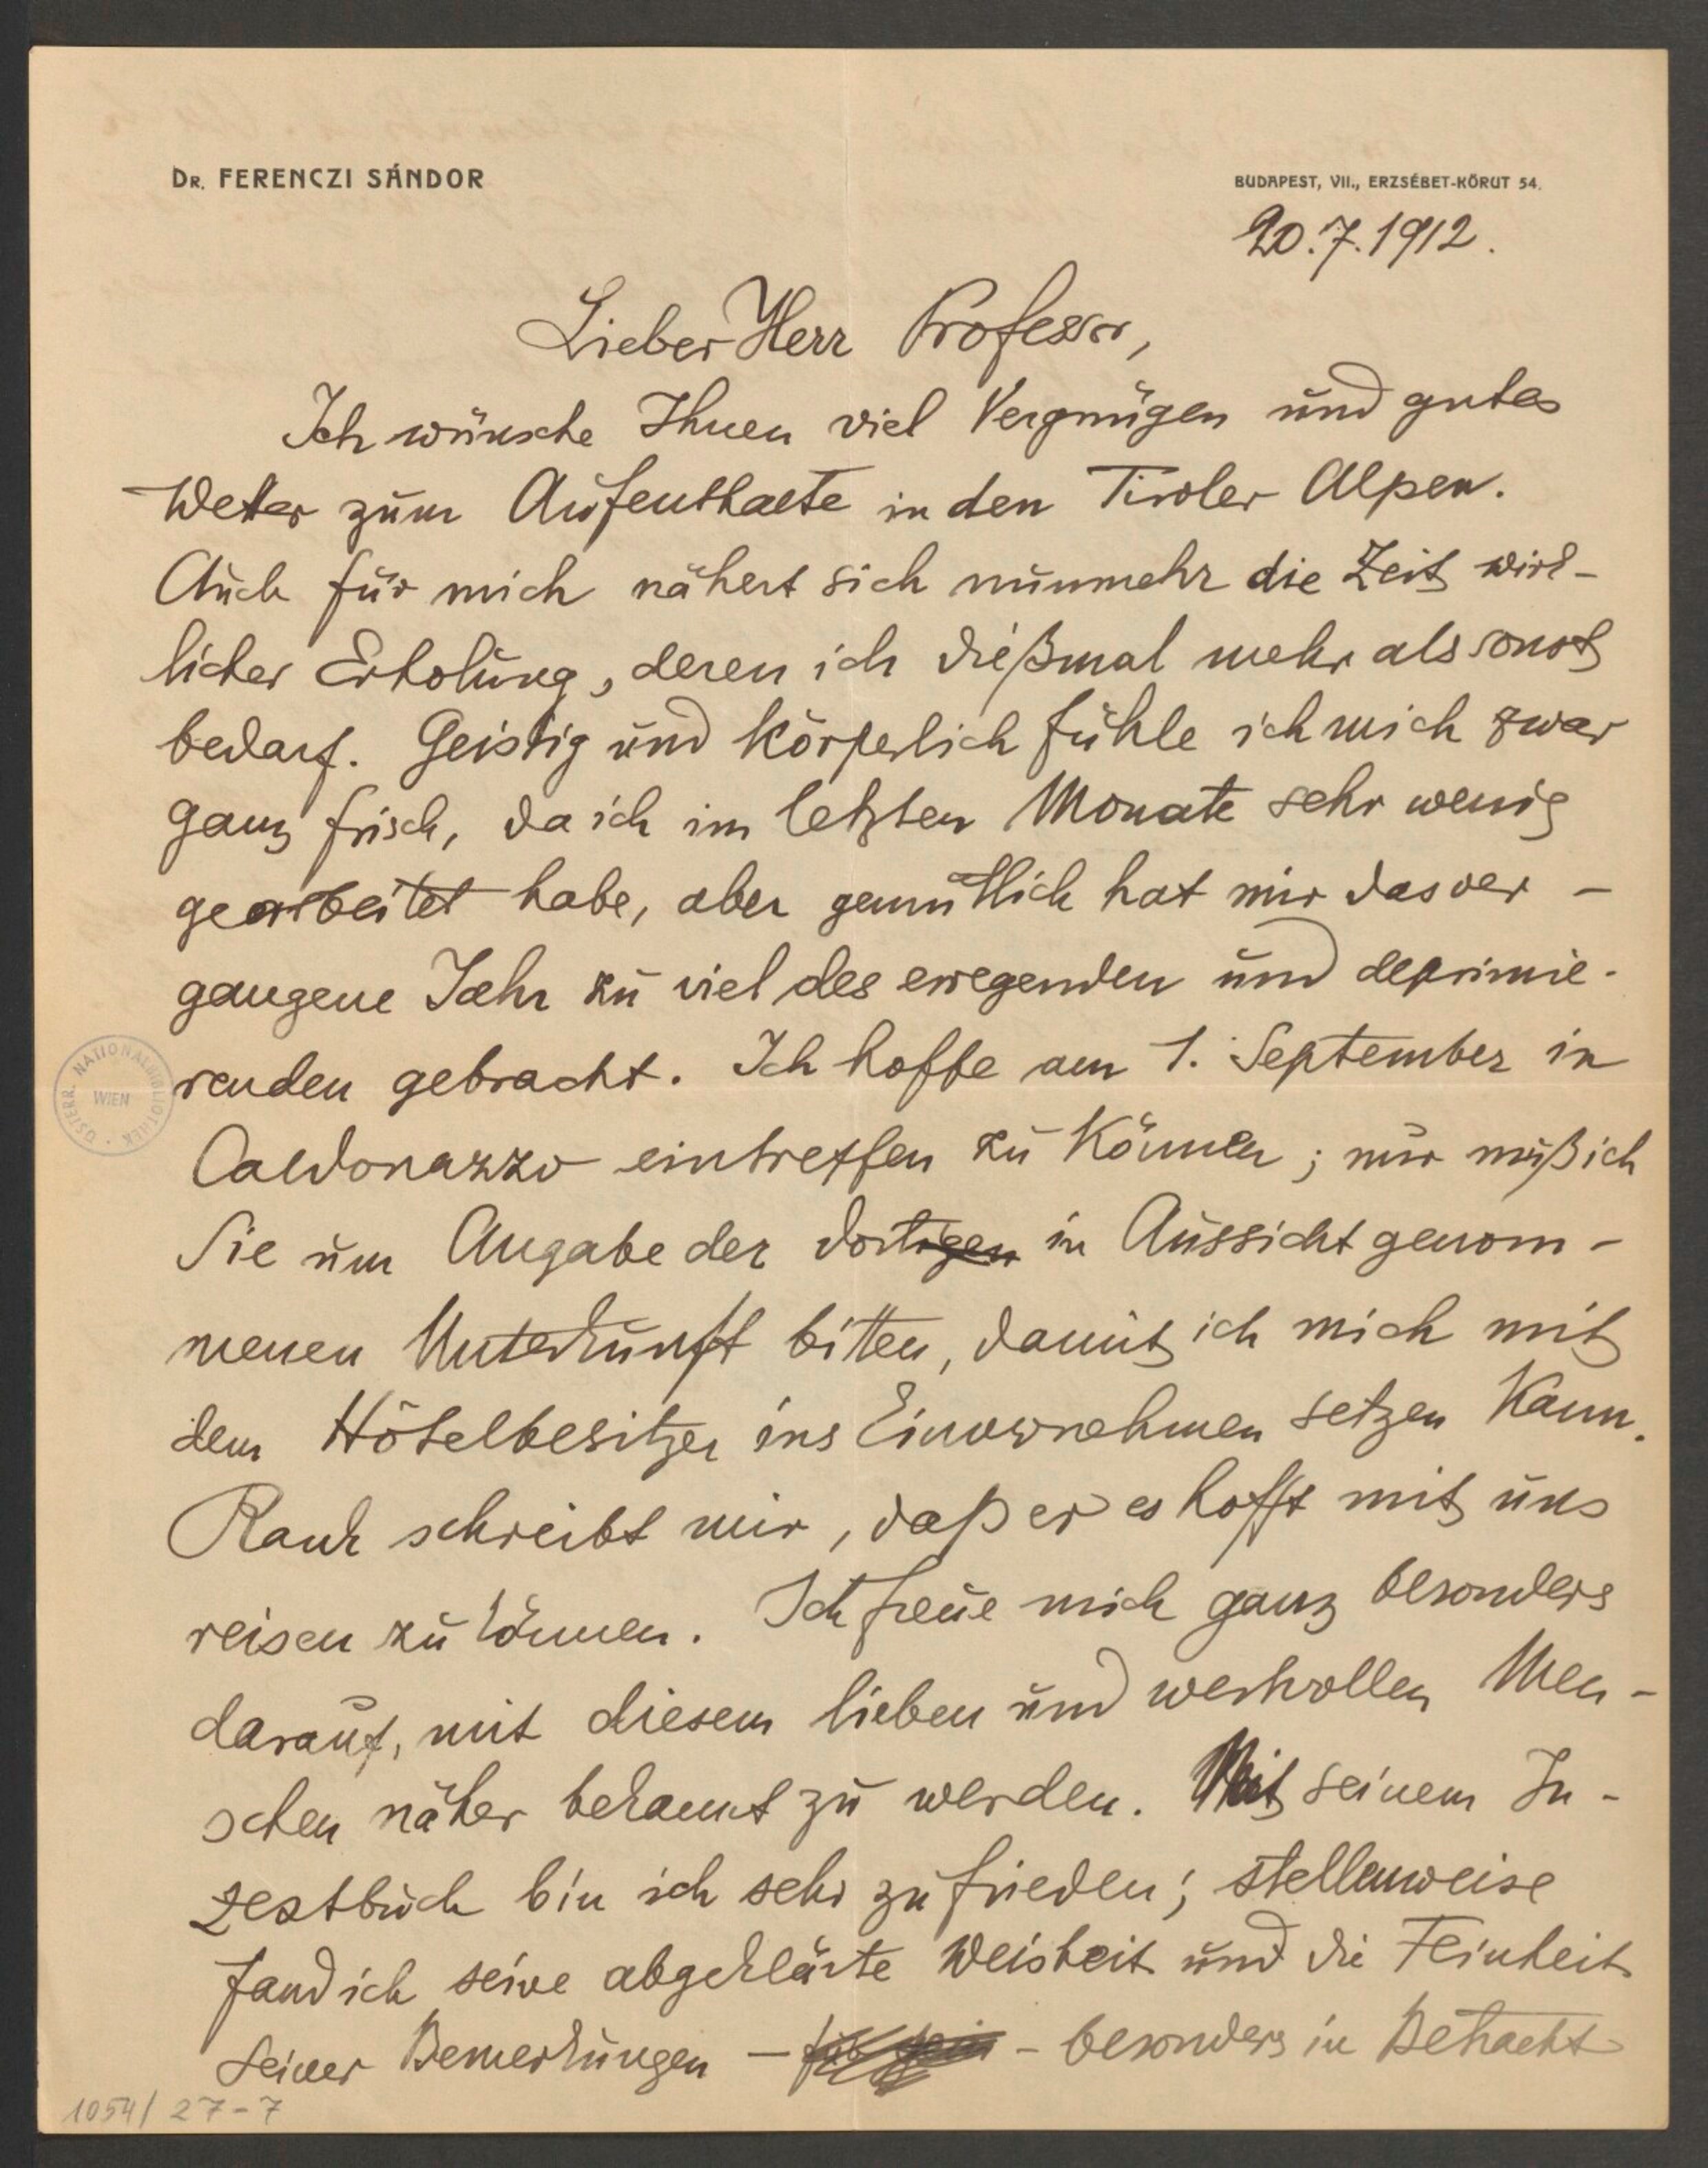 DR. FERENCZI SÁNDOR
BUDAPEST, VII., ERZSÉBET-KÖRUT 54.
20.7.1912.
Lieber Herr Professor,
Ich wünsche Ihnen viel Vergnügen und gutes
Wetter zum Aufenthalte in den Tiroler Alpen.
Auch für mich nähert sich nunmehr die Zeit wirk-
licher Erholung, deren ich dießmal mehr als sonst
bedarf. Geistig und körperlich fühle ich mich zwar
ganz frisch, da ich im letzten Monate sehr wenig
gearbeitet habe, aber gemütlich hat mir das ver-
gangene Jahr zu viel des erregenden und deprimie-
renden gebracht. Ich hoffe am 1. September in
Caldonazzo eintreffen zu können; nur muß ich
Sie um Angabe der dortigen in Aussicht genom-
menen Unterkunft bitten, damit ich mich mit
dem Hôtelbesitzer ins Einvernehmen setzen kann.
Rank schreibt mir, daß er es hofft mit uns
reisen zu können. Ich freue mich ganz besonders
darauf, mit diesem lieben und wertvollen Men-
schen näher bekannt zu werden. Mit seinem In-
zestbuch bin ich sehr zufrieden; stellenweise
fand ich seine abgeklärte Weisheit und die Feinheit
seiner Bemerkungen — – besonders in Betracht
ÖSTERR. NATIONALBIBLIOTHEK
WIEN
1054/27-7